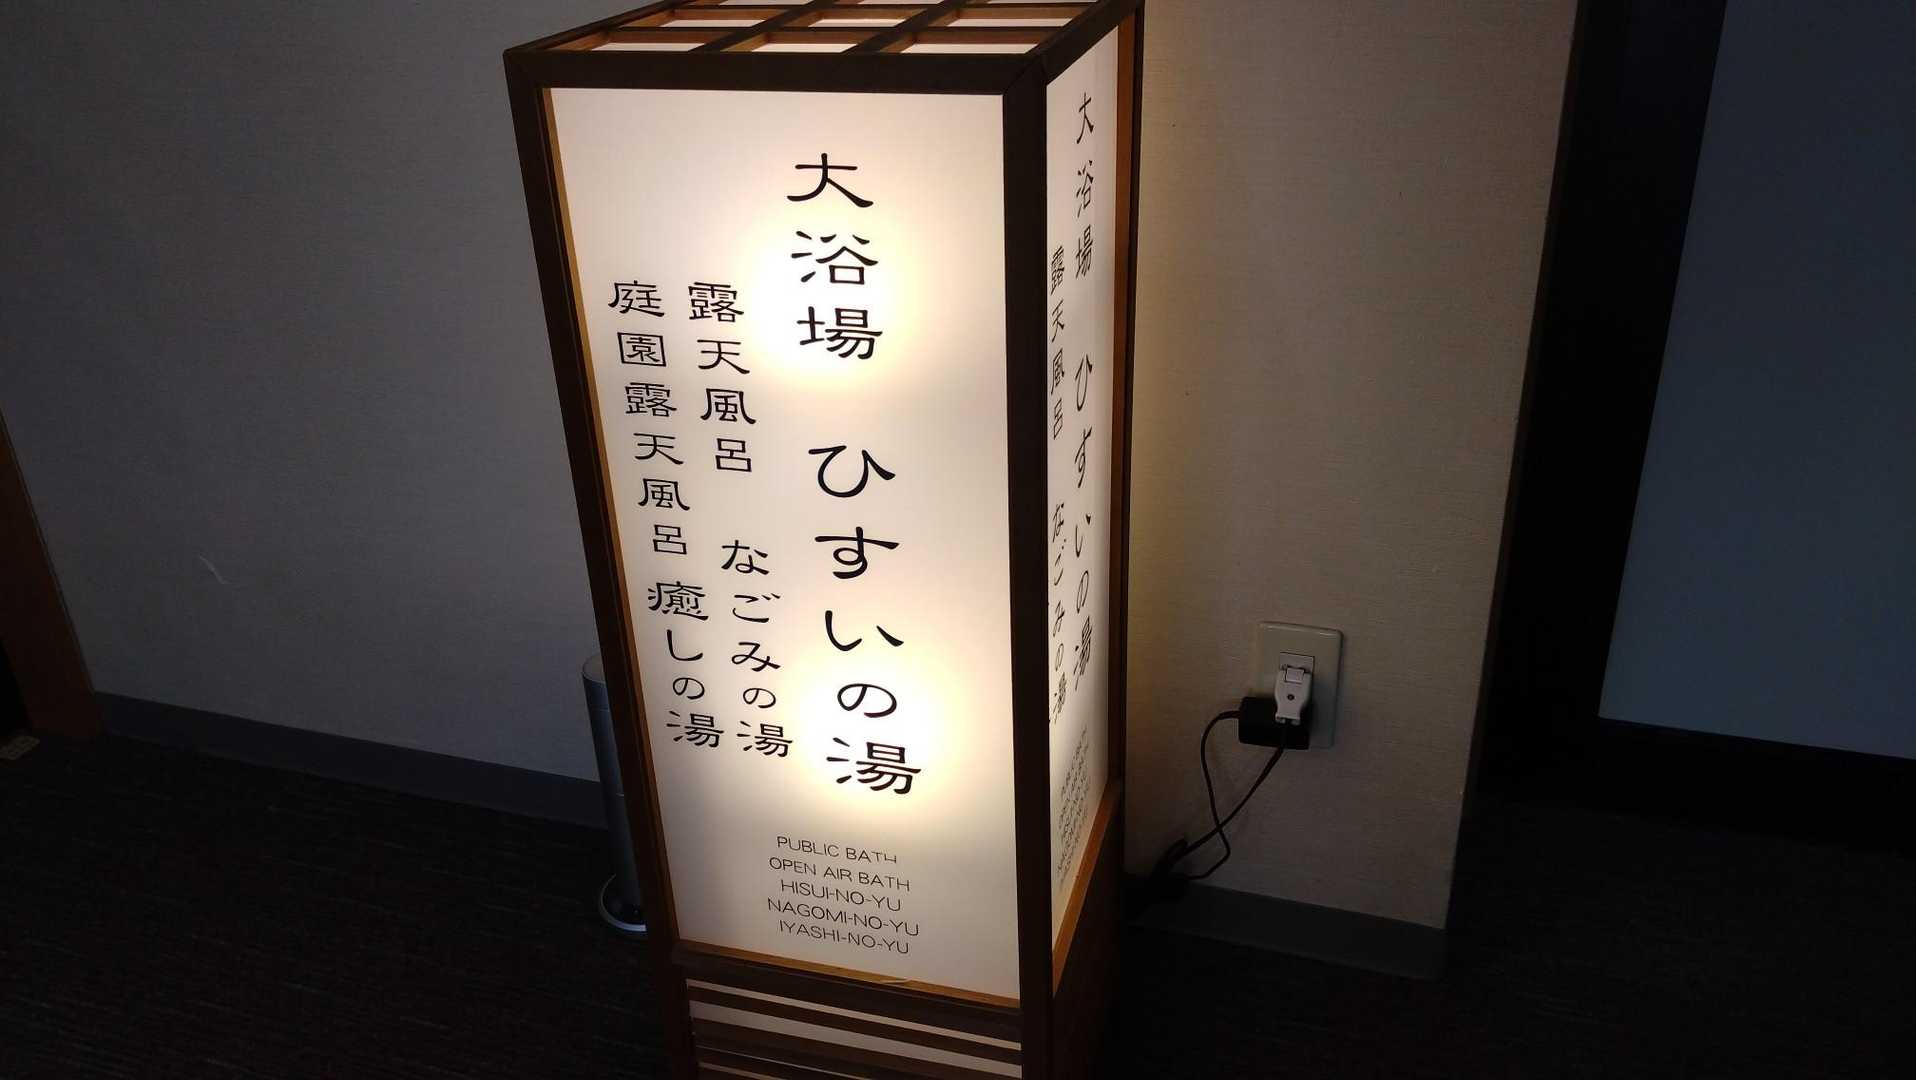 大浴場 ひすいの湯
露天風呂 なごみの湯
庭園露天風呂 癒しの湯
PUBLIC BATH
OPEN AIR BATH
HISUI-NO-YU
NAGOMI-NO-YU
IYASHI-NO-YU
大浴場 ひすいの湯
露天風呂 なごみの湯